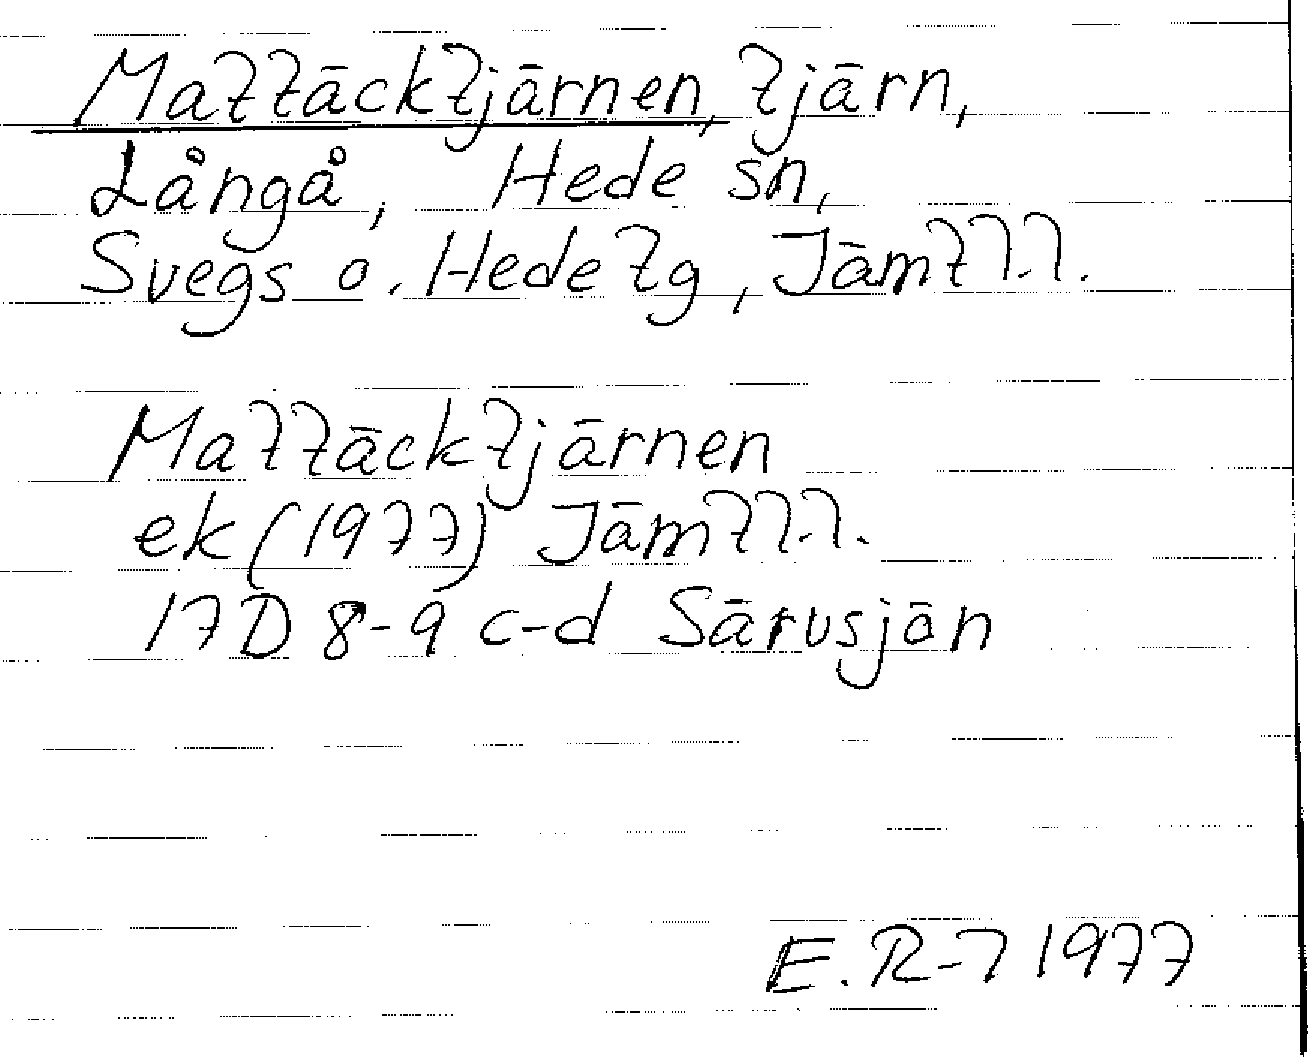 Mattäcktjärnen, tjärn,
Långå, Hede sn,
Svegs o. Hede tg, Jämtl.l.
Mattäcktjärnen
ek (1977) Jämtl.l.
17D 8-9 c-d Särvsjön
E.R-l 1977